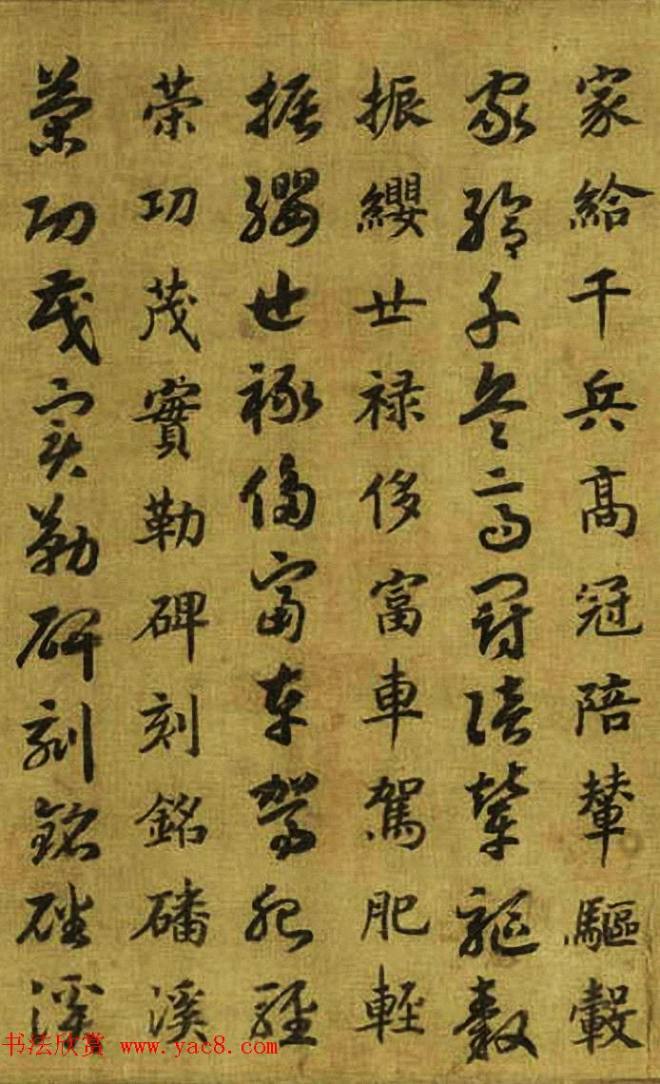 家給千兵高冠陪輦驅轂
家給千兵高冠陪輦驅轂
振纓世禄侈富車駕肥輕
振纓世禄侈富車駕肥輕
策功茂實勒碑刻銘磻溪
策功茂實勒碑刻銘磻溪
书法欣赏 www.yac8.com